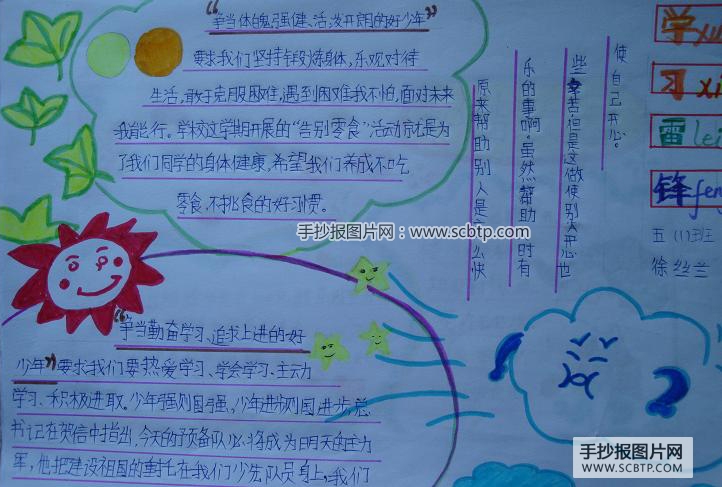 “争当体魄强健、活泼开朗的好少年”
要求我们坚持锻炼身体,乐观对待
生活,敢于克服困难,遇到困难我不怕,面对未来
我能行。学校这学期开展的“告别零食”活动就是为
了我们同学的身体健康,希望我们养成不吃
零食,不挑食的好习惯。
原来帮助别人是这么快
乐的事啊。虽然帮助人时有
些辛苦,但是这做使别人开心也
使自己开心。
学xu
习xi
雷lei
锋fen
五(1)班
徐丝兰
手抄报图片网:www.scbtp.com
“争当勤奋学习、追求上进的好
少年”要求我们要热爱学习、学会学习、主动
学习、积极进取。少年强则国强,少年进步则国进步,总
书记在贺信中指出,今天的预备队必将成为明天的主力
军,他把建设祖国的重托在我们少先队员身上,我们
手抄报图片网
WWW.SCBTP.COM